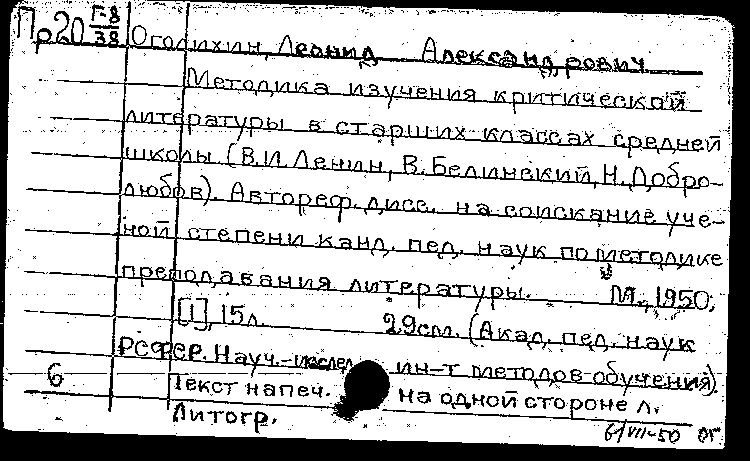 Пр20 Г-8/38
Оголихин, Леонид Александрович
Методика изучения критической
литературы в старших классах средней
школы (В.И. Ленин, В. Белинский, Н. Добро-
любов). Автореф. дисс. на соискание уче-
ной степени канд. пед. наук по методике
преподавания литературы. М., 1950,
[1], 15л. 29см. (Акад. пед. наук
РСФСР. Науч.-исслед. ин-т методов обучения).
6 Текст напеч. на одной стороне л.
Литогр.
6/VII-50